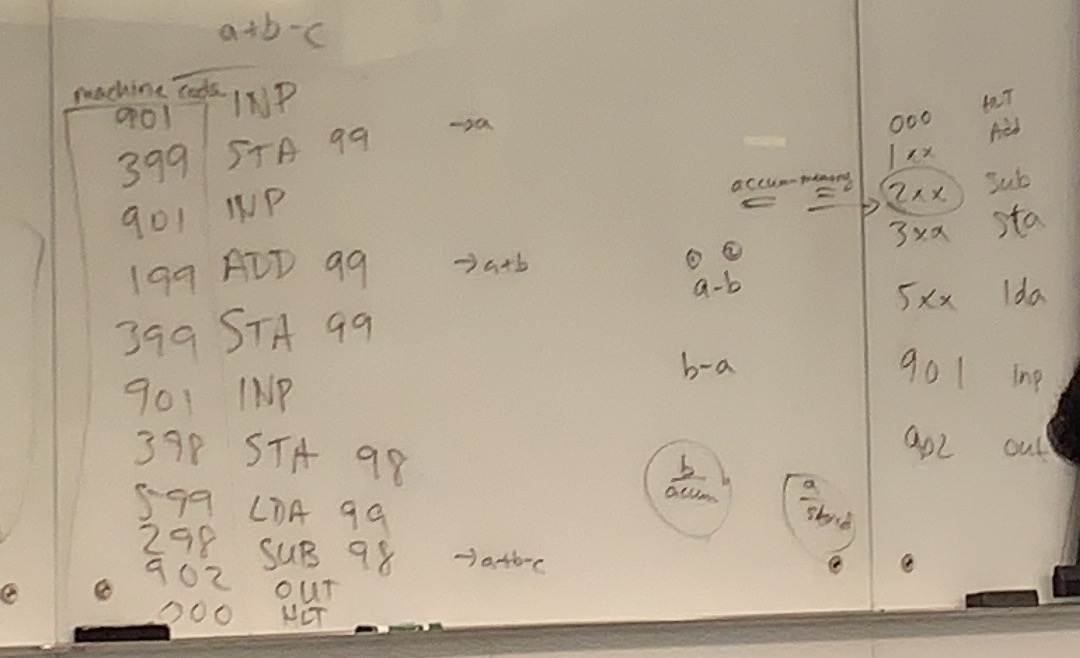 a+b-c
machine code
901 INP
399 STA 99 →a
901 INP
199 ADD 99 →a+b
399 STA 99
901 INP
398 STA 98
599 LDA 99
298 SUB 98 →a+b-c
902 OUT
000 HLT
accum-memory
① ②
a-b
b-a
b
accum
a
stored
000 HLT
1xx Add
2xx Sub
3xx Sta
5xx lda
901 Inp
902 out